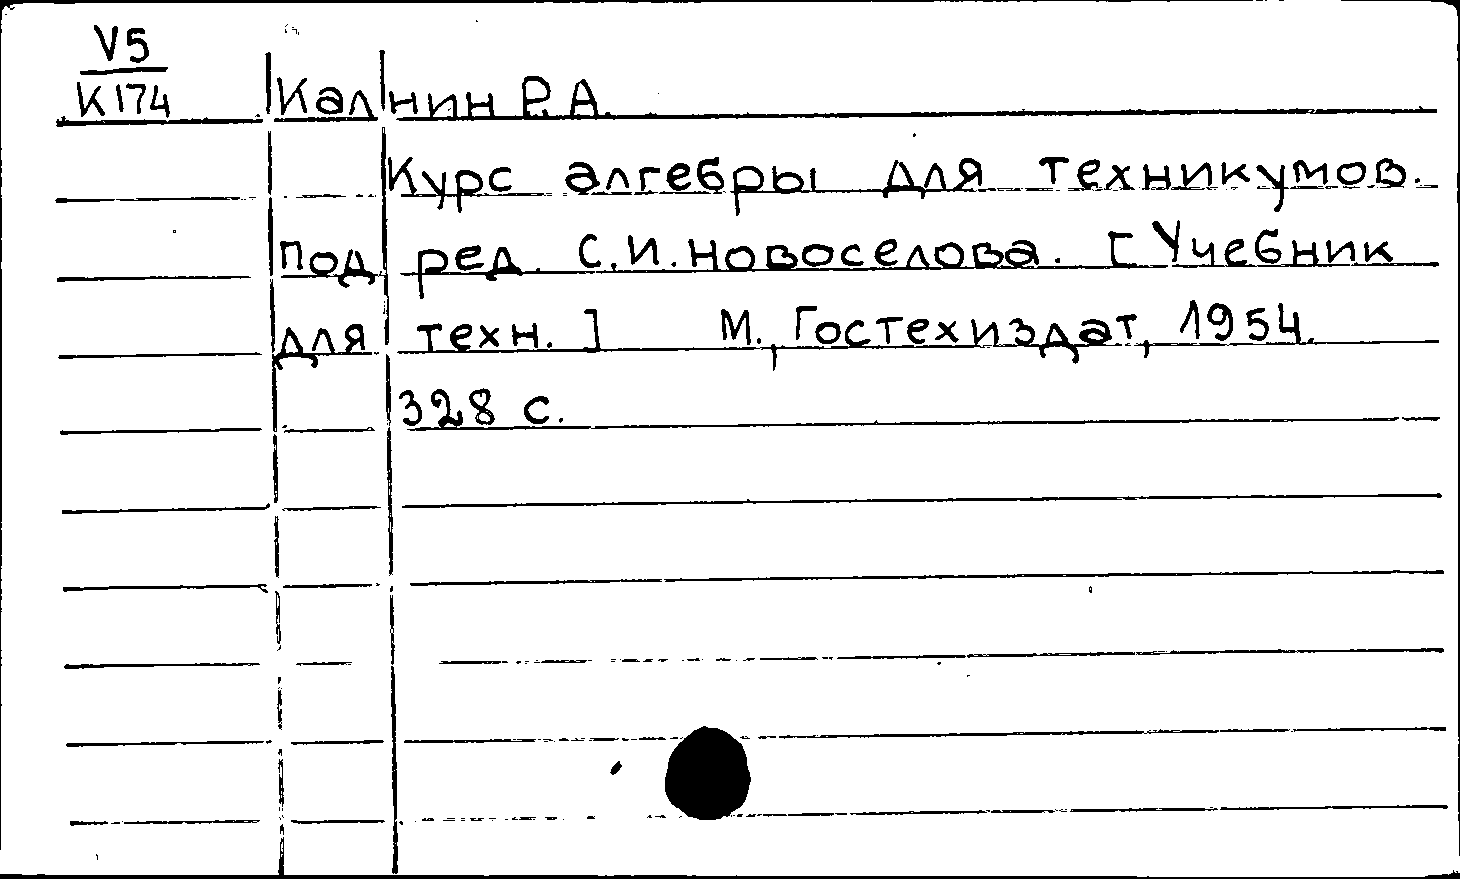 V5
К174
Калнин Р.А.
Курс алгебры для техникумов.
Под ред. С.И.Новоселова. [Учебник
для техн.] М., Гостехиздат, 1954.
328 с.